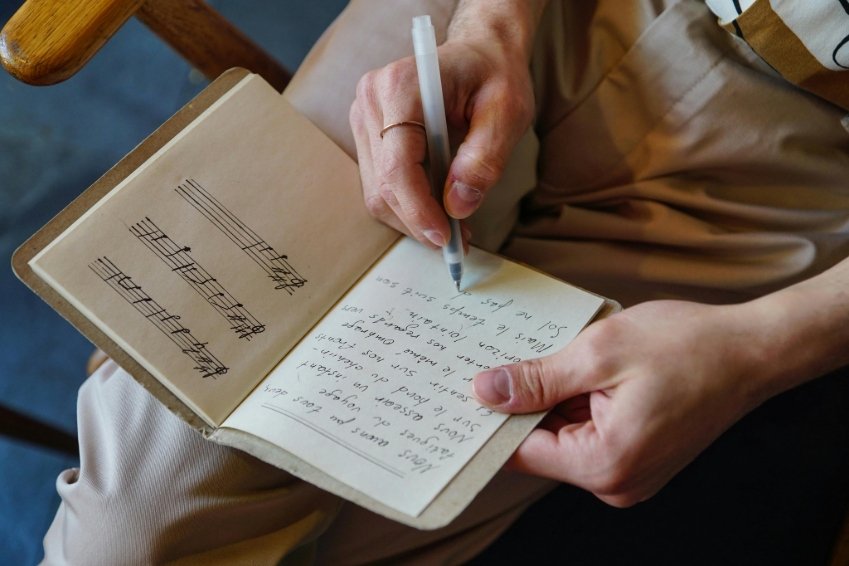 Nous avons pu tous deux
fatigués du voyage
Nous asseoir un instant
sur le bord du chemin-
sentir sur nos fronts
le même ombrage
porter nos regards vers
horizon lointain
Mais le temps suit son
Sol ne pas